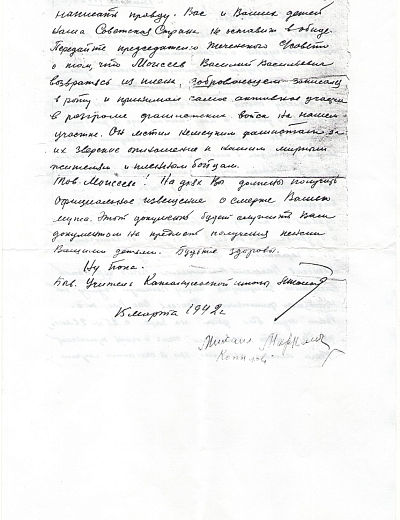 написать правду. Вас и Ваших детей
наша Советская Страна не оставит в обиде.
Передайте председателю
о том, что Моисеев Василий Васильевич
возвратясь из плена, добровольцем записался
в роту и принимал самое активное участие
в разгроме фашистских войск на нашем
участке. Он мстил немецким фашистам за
их зверское отношение к нашим мирным
жителям и пленным бойцам.
Тов. Моисеева! На днях Вы должны получить
официальное извещение о смерти Вашего
мужа. Этот документ будет служить Вам
документом на предмет получения пенсии
Вашими детьми. Будьте здоровы.
Ну Пока.
Быв. Учитель школы
15 марта 1942 г
Михаил